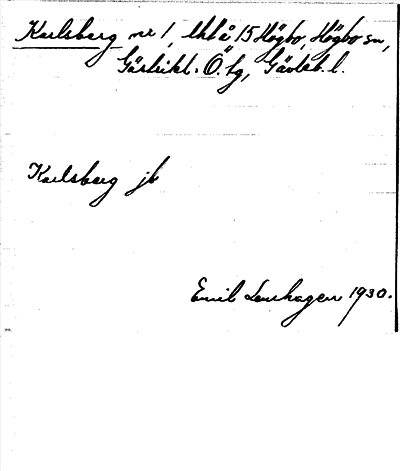 Karlsberg nr 1, Ulvså 15 Högbo, Högbo sn,
Gästrikl. Ö. tg, Gävleb. l.
Karlsberg jb
Emil Lenhagen 1930.